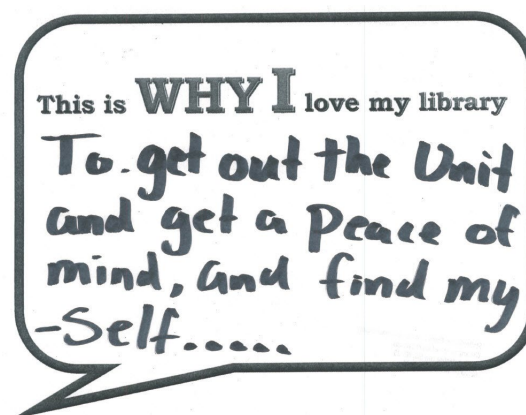 This is WHY I love my library
To. get out the Unit
and get a Peace of
mind, and find my
-Self.....